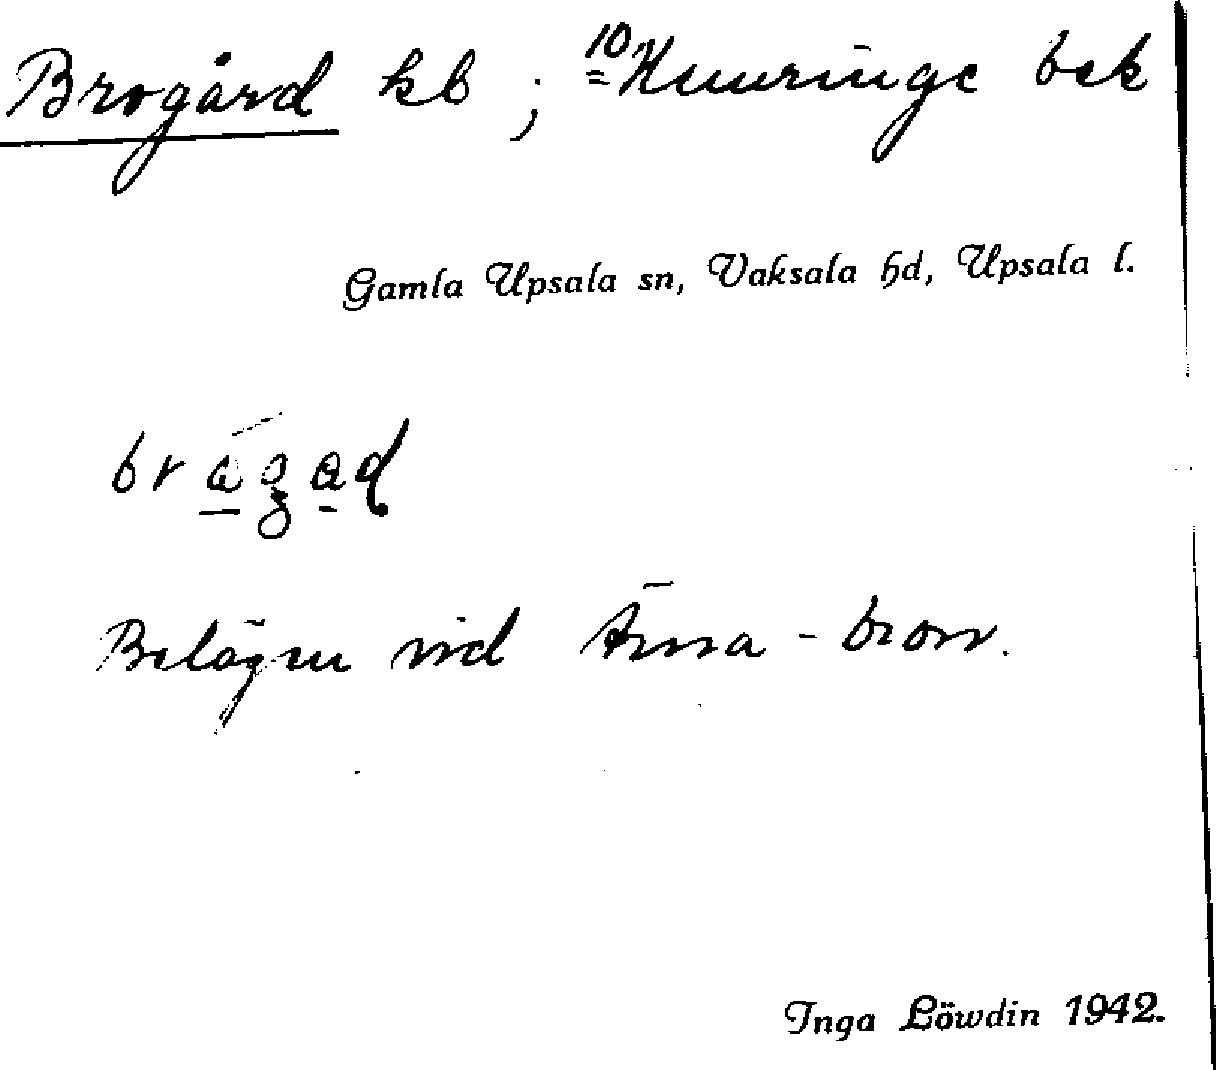 Brogård kb ; 10 Huuringe bek
Gamla Upsala sn, Vaksala hd, Upsala l.
Belägen vid Ärna-bron.
Inga Löwdin 1942.